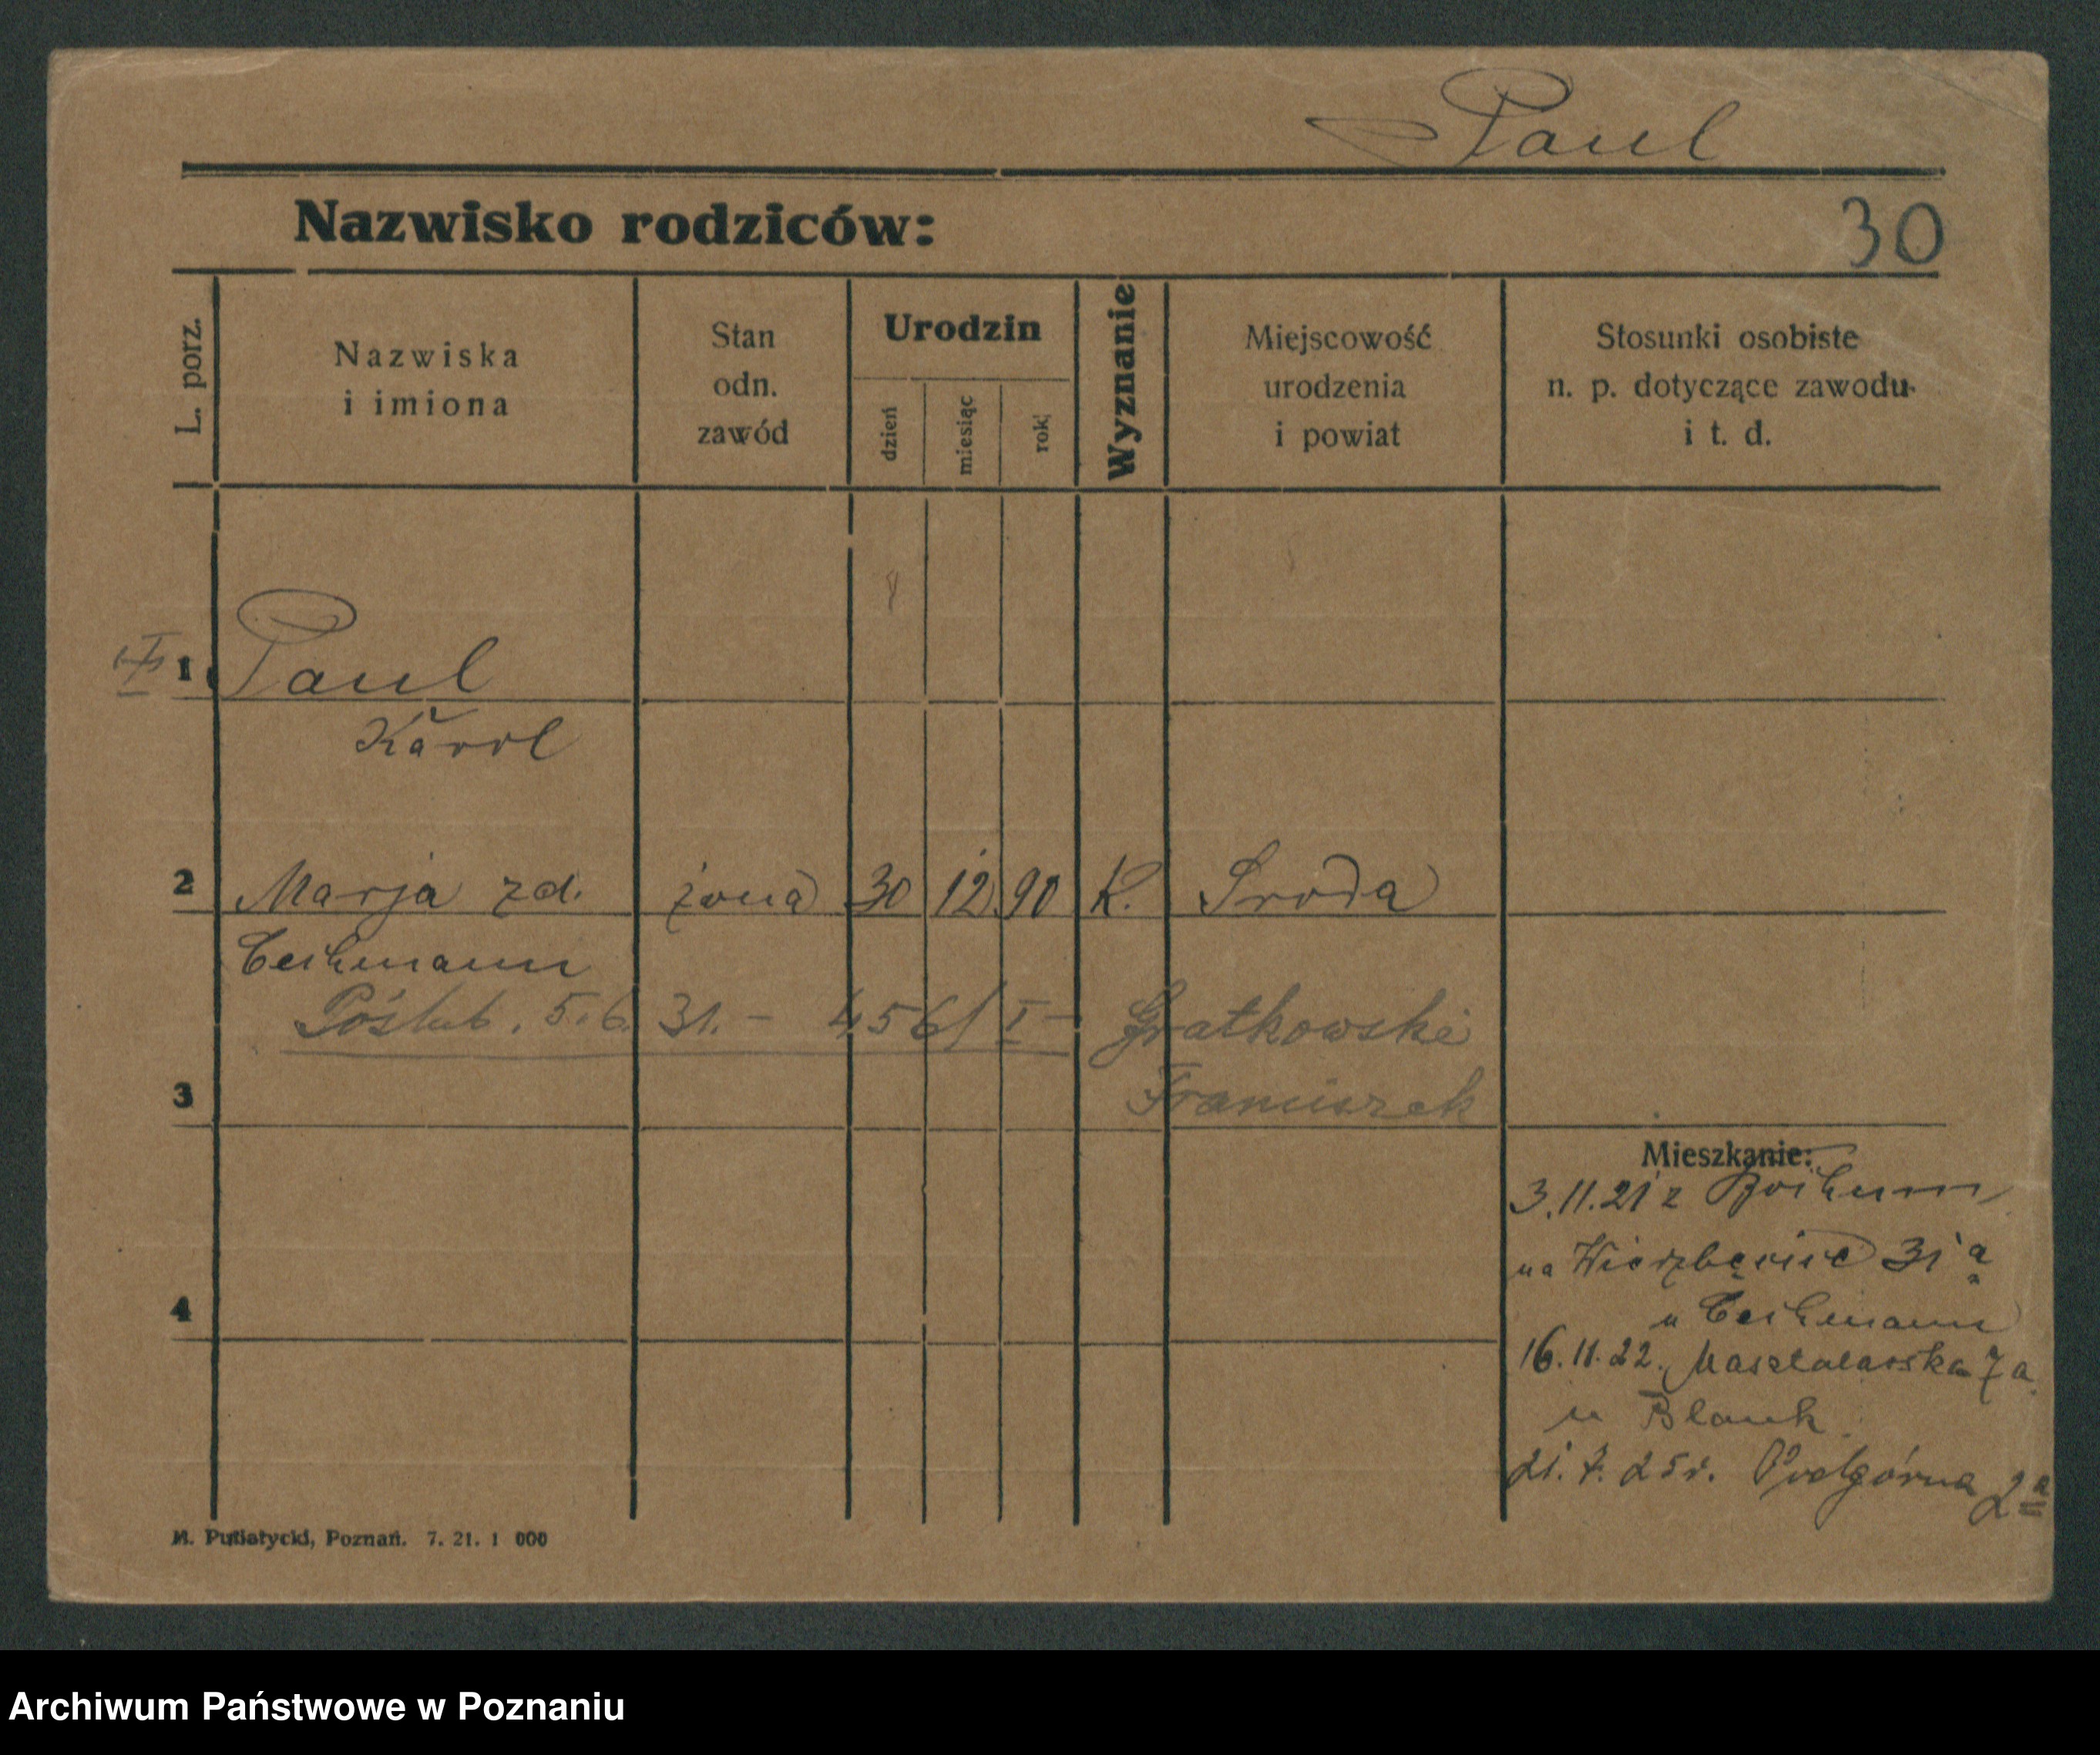 Paul
Nazwisko rodziców:
30
L. porz.
Nazwiska
i imiona
Stan
odn.
zawód
Urodzin
dzień
miesiąc
rok
Wyznanie
Miejscowość
urodzenia
i powiat
Stosunki osobiste
n. p. dotyczące zawodu
i t. d.
1
Paul
Karol
2 Marja zd. żona 30 12 90 K. Sroda
Techmann
Póślub. 5.6. 31. - 456/I - Gratkowski
Franciszek
3
Mieszkanie:
3.11.21 z Bochum
na Wierzbęcice 31 a
u Techmann
4
16.11.22. Masztalarska 7a
u Blank
21.7.25r. Podgórna 2a
M. Putiatycki, Poznań. 7. 21. 1 000
Archiwum Państwowe w Poznaniu